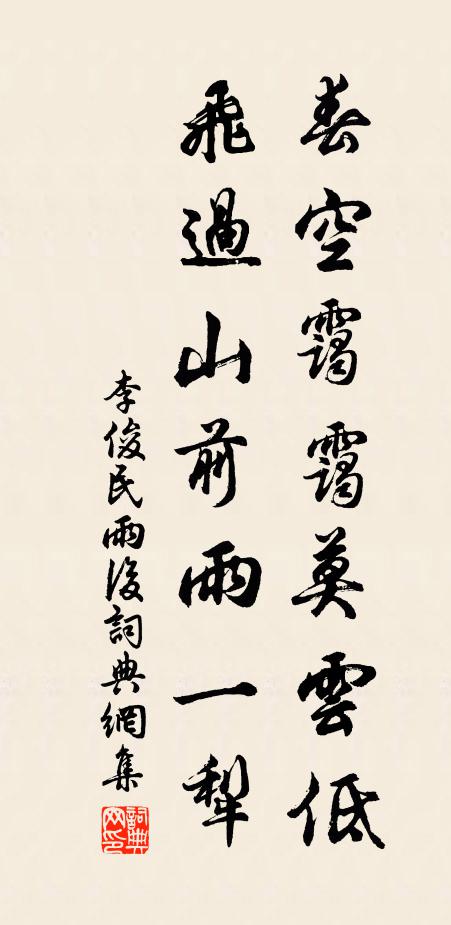 春空靄靄莫雲低
飛過山前雨一犁
李俊民雨後詞典網集
詞典網印